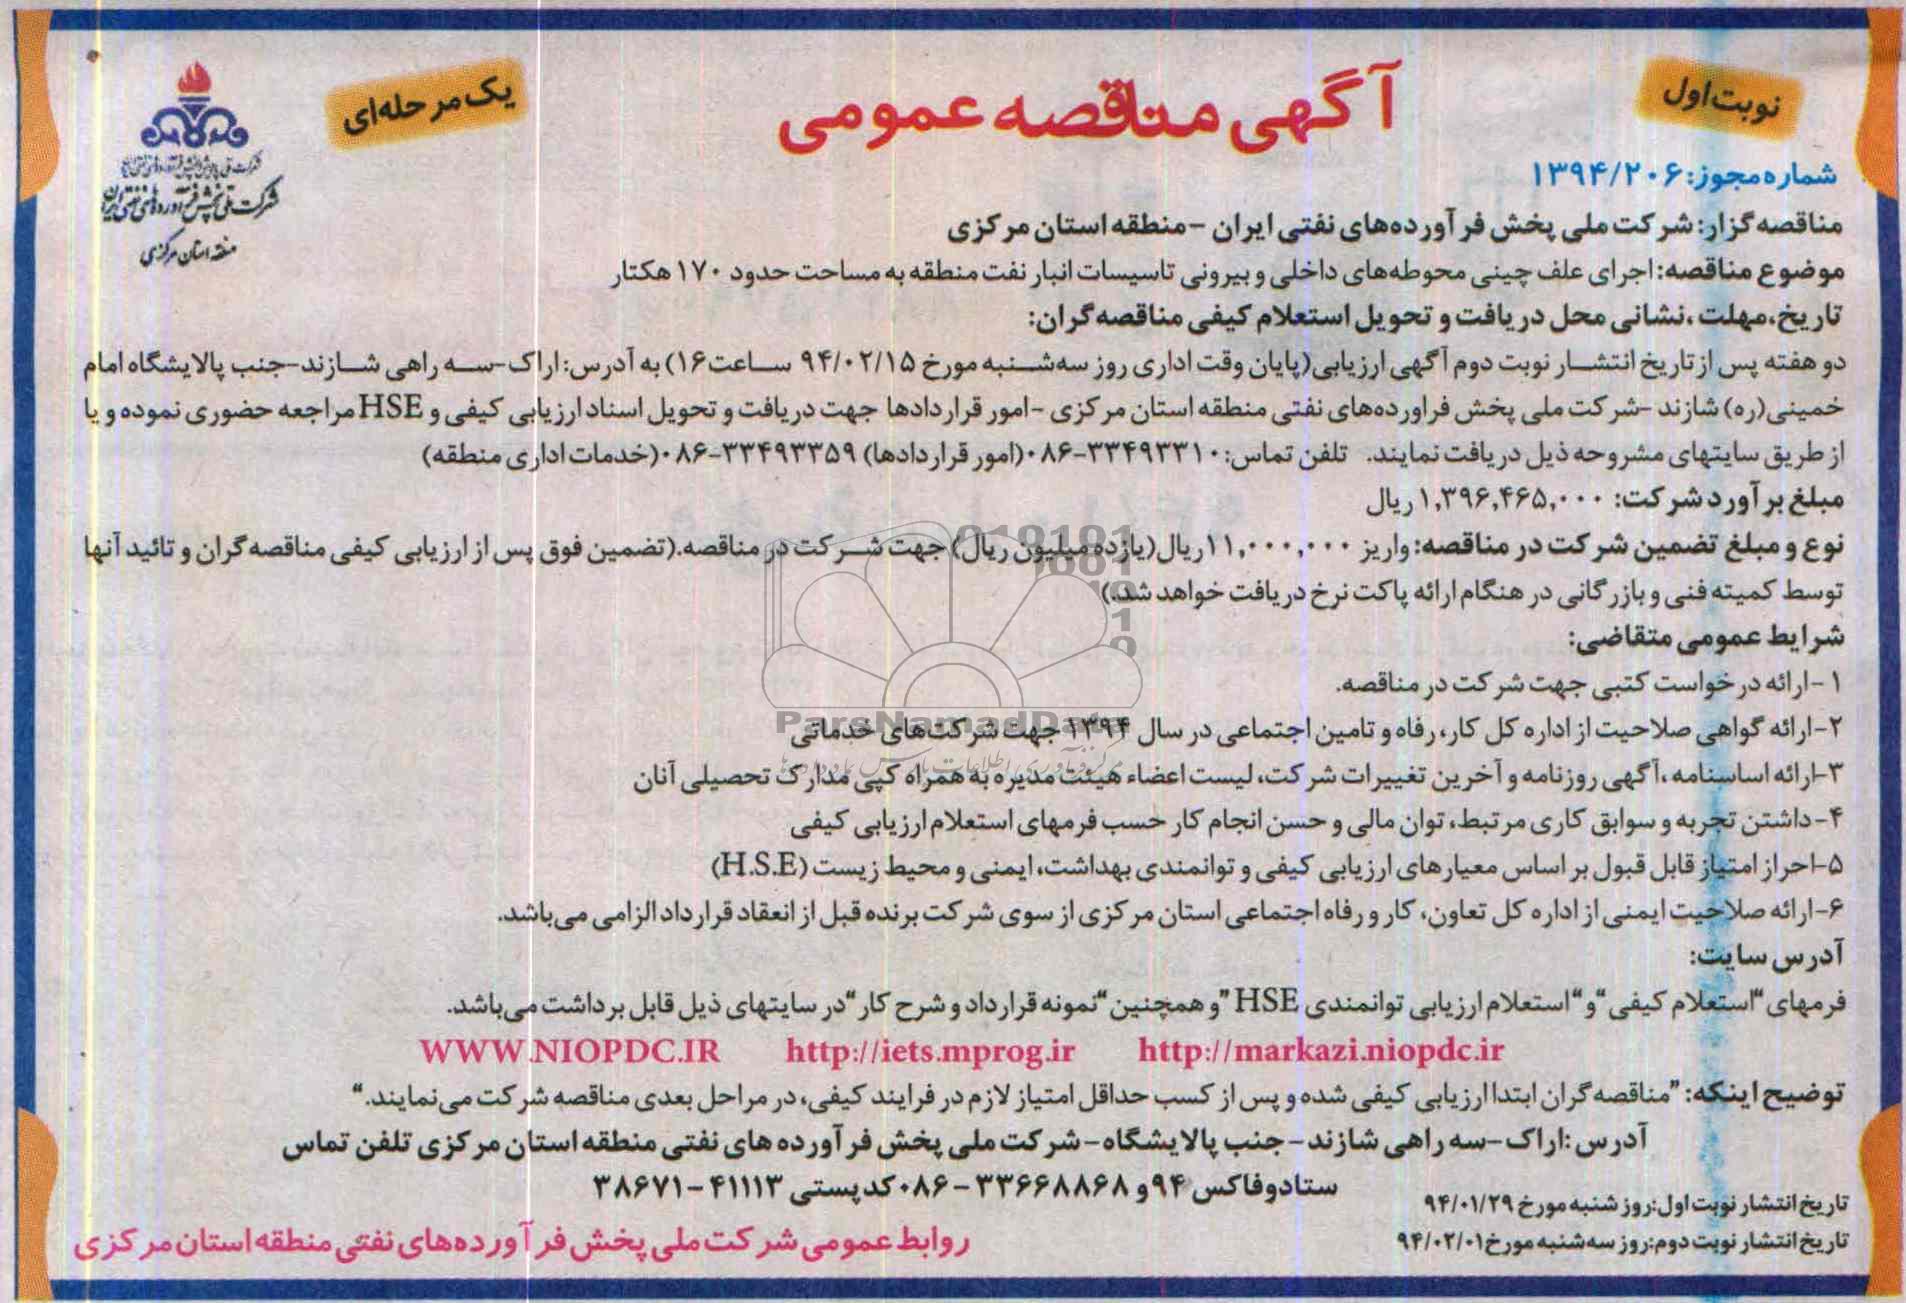 نوبت اول
آگهی مناقصه عمومی
یک مرحله‌ای
شرکت ملی پالایش و پخش فرآورده‌های نفتی ایران
شرکت ملی پخش فرآورده‌های نفتی ایران
منطقه استان مرکزی
شماره مجوز: ۱۳۹۴/۲۰۶
مناقصه گزار: شرکت ملی پخش فرآورده‌های نفتی ایران -منطقه استان مرکزی
موضوع مناقصه: اجرای علف چینی محوطه‌های داخلی و بیرونی تاسیسات انبار نفت منطقه به مساحت حدود ۱۷۰ هکتار
تاریخ،مهلت ،نشانی محل دریافت و تحویل استعلام کیفی مناقصه گران:
دو هفته پس از تاریخ انتشار نوبت دوم آگهی ارزیابی(پایان وقت اداری روز سه‌شنبه مورخ ۹۴/۰۲/۱۵ ساعت۱۶) به آدرس: اراک-سه راهی شازند-جنب پالایشگاه امام
خمینی(ره) شازند -شرکت ملی پخش فراورده‌های نفتی منطقه استان مرکزی -امور قراردادها جهت دریافت و تحویل اسناد ارزیابی کیفی و HSE مراجعه حضوری نموده و یا
از طریق سایتهای مشروحه ذیل دریافت نمایند. تلفن تماس: ۳۳۴۹۳۳۱۰-۰۸۶(امور قراردادها) ۳۳۴۹۳۳۵۹-۰۸۶(خدمات اداری منطقه)
مبلغ برآورد شرکت: ۱,۳۹۶,۴۶۵,۰۰۰ ریال
نوع و مبلغ تضمین شرکت در مناقصه: واریز ۱۱,۰۰۰,۰۰۰ریال(یازده میلیون ریال) جهت شرکت در مناقصه.(تضمین فوق پس از ارزیابی کیفی مناقصه گران و تائید آنها
توسط کمیته فنی و بازرگانی در هنگام ارائه پاکت نرخ دریافت خواهد شد.)
شرایط عمومی متقاضی:
۱-ارائه درخواست کتبی جهت شرکت در مناقصه.
۲-ارائه گواهی صلاحیت از اداره کل کار، رفاه و تامین اجتماعی در سال ۱۳۹۴ جهت شرکت‌های خدماتی
۳-ارائه اساسنامه ،آگهی روزنامه و آخرین تغییرات شرکت، لیست اعضاء هیئت مدیره به همراه کپی مدارک تحصیلی آنان
۴-داشتن تجربه و سوابق کاری مرتبط، توان مالی و حسن انجام کار حسب فرمهای استعلام ارزیابی کیفی
۵-احراز امتیاز قابل قبول بر اساس معیارهای ارزیابی کیفی و توانمندی بهداشت، ایمنی و محیط زیست (H.S.E)
۶-ارائه صلاحیت ایمنی از اداره کل تعاون، کار و رفاه اجتماعی استان مرکزی از سوی شرکت برنده قبل از انعقاد قرارداد الزامی می‌باشد.
آدرس سایت:
فرمهای “استعلام کیفی “و “استعلام ارزیابی توانمندی HSE ”و همچنین “نمونه قرارداد و شرح کار “در سایتهای ذیل قابل برداشت می‌باشد.
WWW.NIOPDC.IR http://iets.mprog.ir http://markazi.niopdc.ir
توضیح اینکه: ”مناقصه گران ابتدا ارزیابی کیفی شده و پس از کسب حداقل امتیاز لازم در فرایند کیفی، در مراحل بعدی مناقصه شرکت می‌نمایند.“
آدرس :اراک-سه راهی شازند- جنب پالایشگاه- شرکت ملی پخش فرآورده های نفتی منطقه استان مرکزی تلفن تماس
ستادوفاکس ۹۴و ۳۳۶۶۸۸۶۸-۰۸۶ کدپستی ۴۱۱۱۳-۳۸۶۷۱
تاریخ انتشار نوبت اول:روز شنبه مورخ ۹۴/۰۱/۲۹
تاریخ انتشار نوبت دوم:روز سه‌شنبه مورخ۹۴/۰۲/۰۱
روابط عمومی شرکت ملی پخش فرآورده‌های نفتی منطقه استان مرکزی
ParsNamadData
مرکز فرآوری اطلاعات پارس نماد داده ها